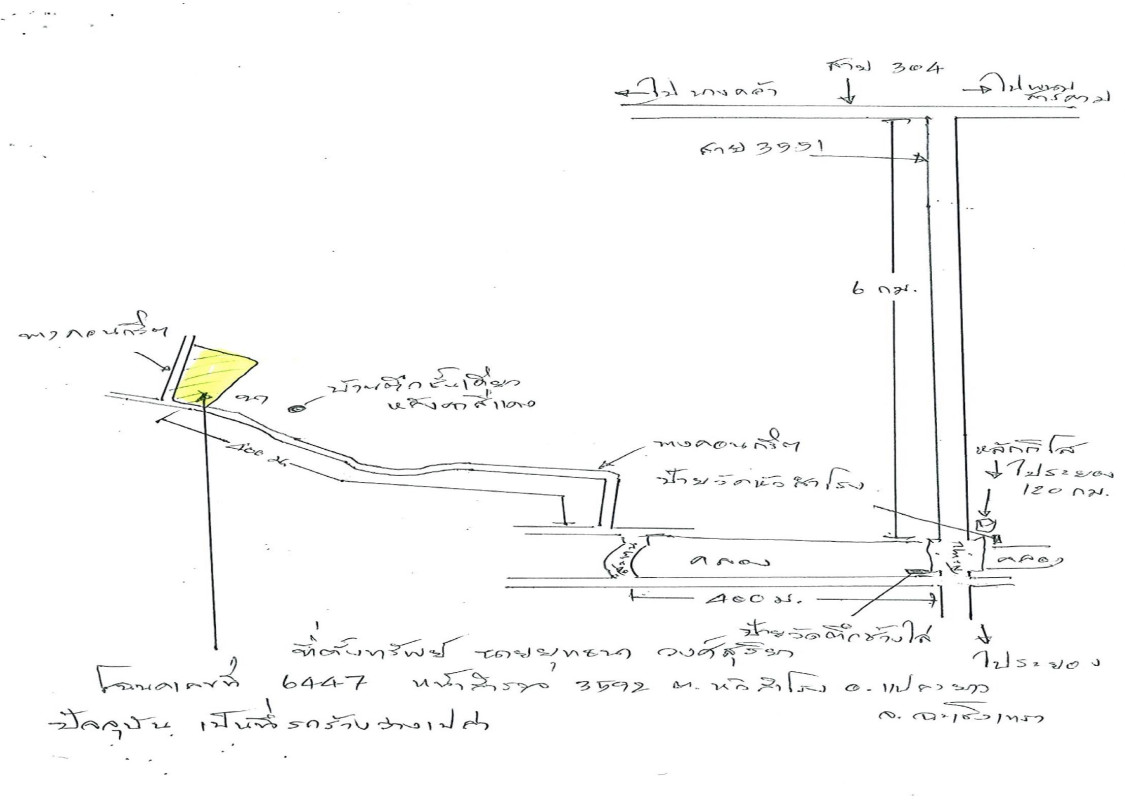 สาย 304
ไปบางคล้า
ไปพนม
สารคาม
สาย 3551
6 กม.
ทางคอนกรีต
บ้านตึกชั้นเดียว
หลังคาสีแดง
400 ม.
ทางคอนกรีต
ป้ายวัดหัวสำโรง
หลักกิโล
ไประยอง
120 กม.
สะพาน
คลอง
สะพาน
คลอง
400 ม.
ป้ายวัดตึก
ไประยอง
ที่ตั้งทรัพย์ นายยุทธนา
โฉนดเลขที่ 6447 หน้าสำรวจ 3592 ต.หัวสำโรง อ.แปลงยาว
จ.ฉะเชิงเทรา
ปัจจุบัน เป็นที่รกร้างว่างเปล่า